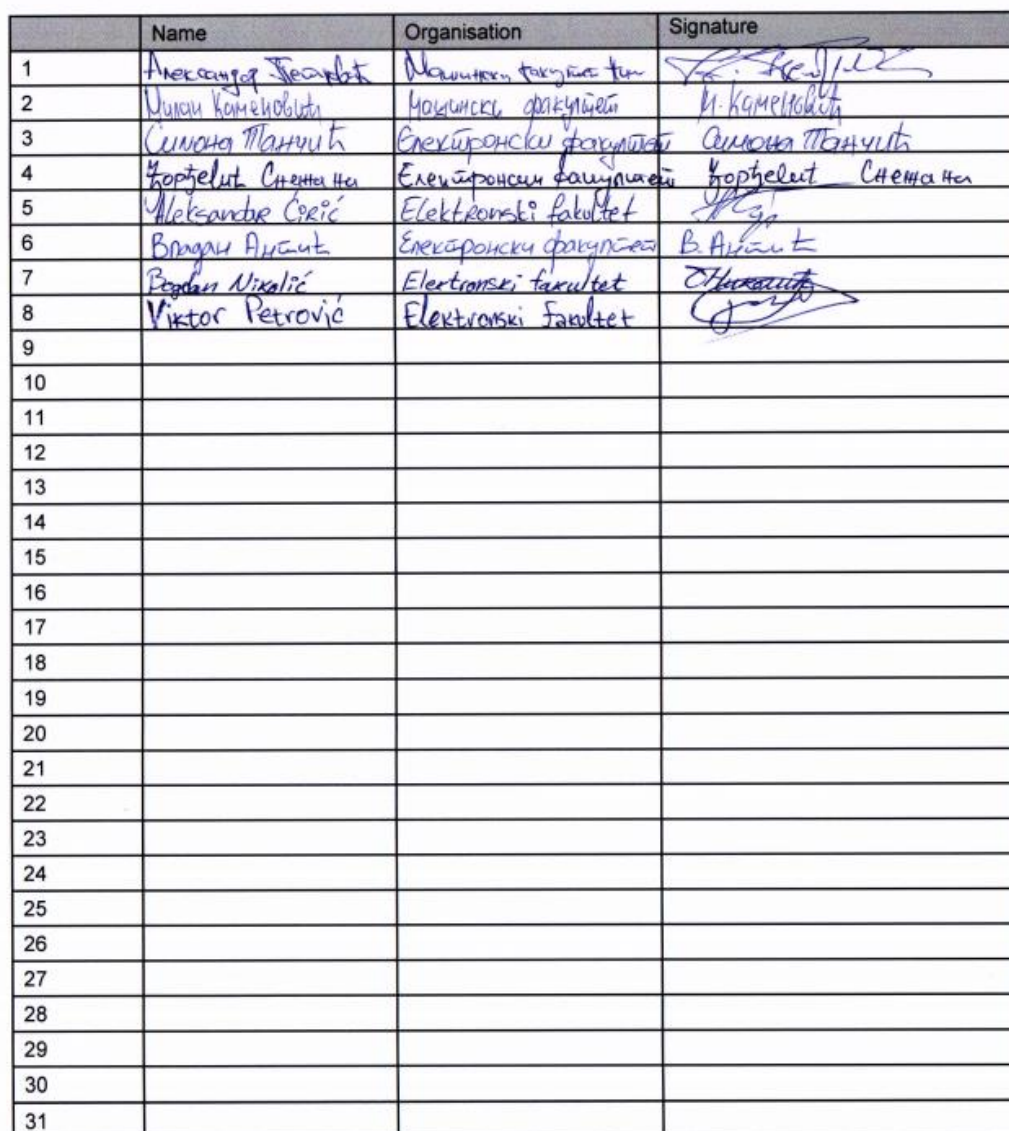 Name Organisation Signature
1 Александар Машински факултет Ниш
2 Милан Каменовић Машински факултет М. Каменовић
3 Симона Танчић Електронски факултет Симона Танчић
4 Ђорђевић Снежана Електронски факултет Ђорђевић Снежана
5 Aleksandar Ćirić Elektronski fakultet
6 Владан Антић Електронски факултет В. Антић
7 Bogdan Nikolić Elektronski fakultet
8 Viktor Petrović Elektronski fakultet
9
10
11
12
13
14
15
16
17
18
19
20
21
22
23
24
25
26
27
28
29
30
31